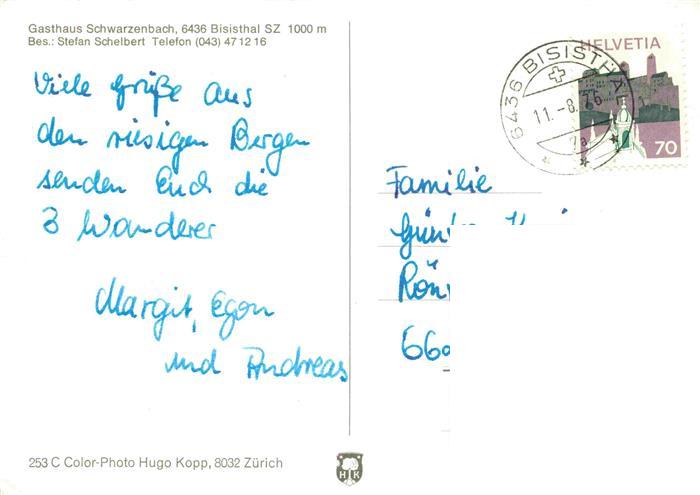 Gasthaus Schwarzenbach, 6436 Bisisthal SZ 1000 m
Bes.: Stefan Schelbert Telefon (043) 47 12 16
Viele Grüße aus
den riesigen Bergen
senden Euch die
3 Wanderer
Margit, Egon
und Andreas
HELVETIA
70
6436 BISISTHAL
11.-8.76
Familie
660
253 C Color-Photo Hugo Kopp, 8032 Zürich
H K